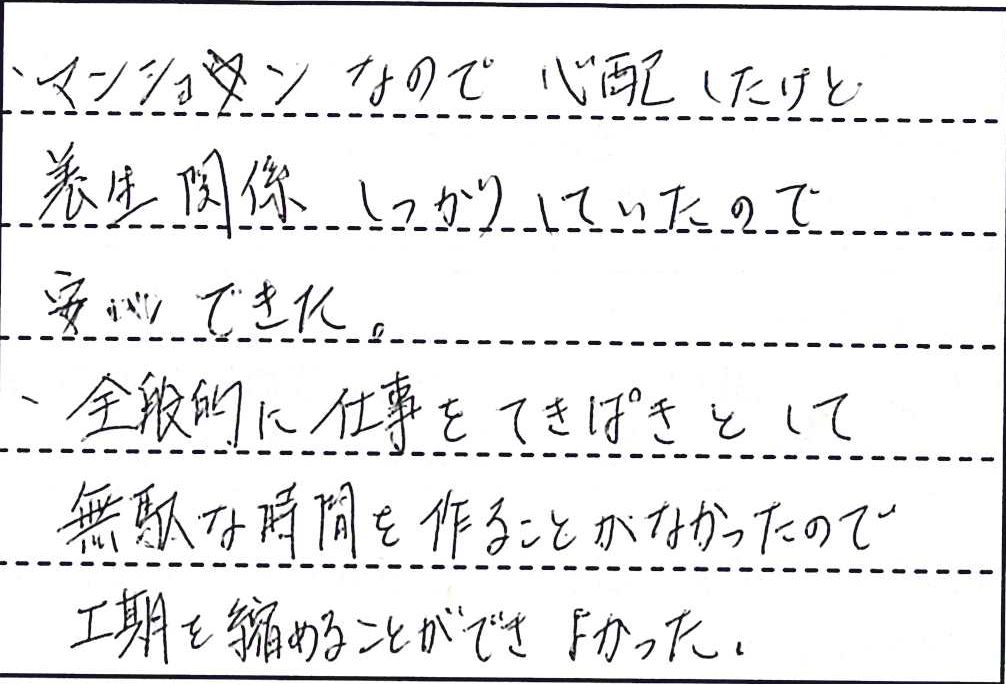 、マンション なので 心配したけど
養生関係 しっかりしていたので
安心できた。
、全般的に仕事をてきぱきとして
無駄な時間を作ることがなかったので
工期を縮めることができよかった。